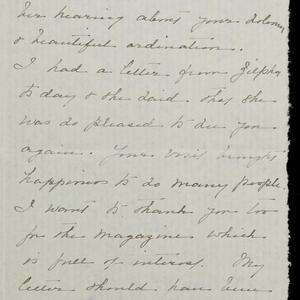 her hearing about your solemn
& beautiful ordination.
I had a letter from Zilpha
to day & she said that she
was so pleased to see you
again. Your visit brought
happiness to so many people.
I want to thank you too
for the magazine which
is full of interest. My
letter should have been